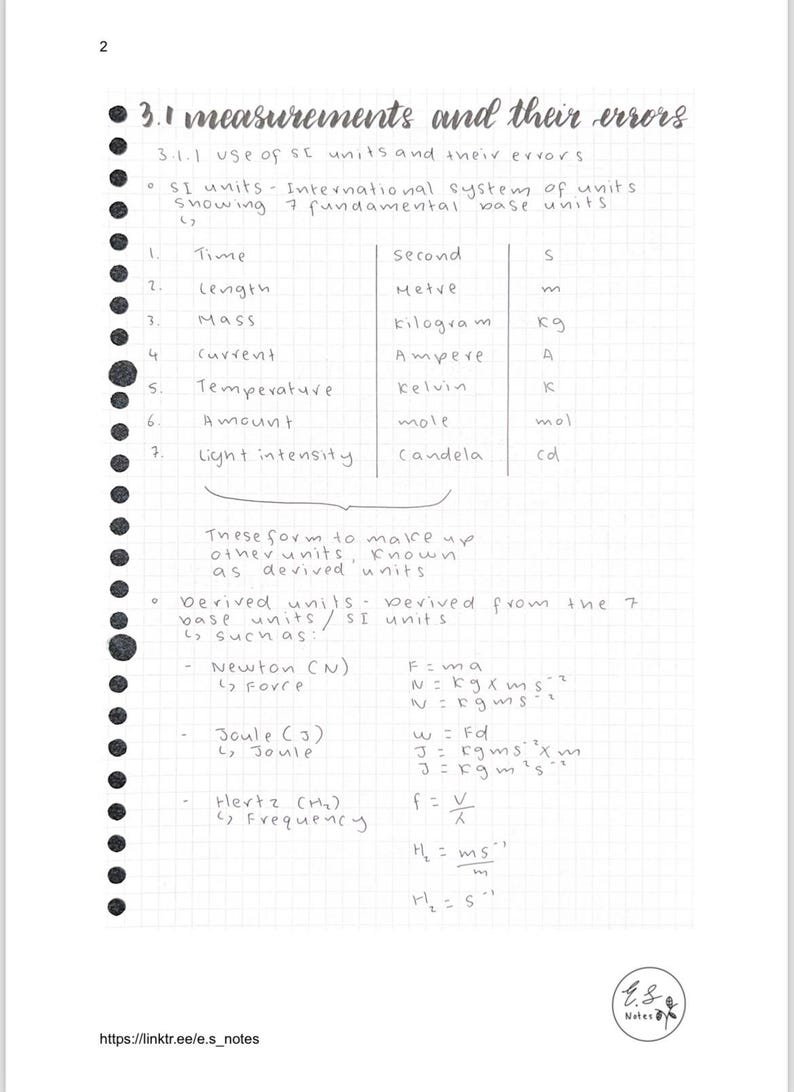 2
3.1 measurements and their errors
3.1.1 use of SI units and their errors
° SI units - International system of units
showing 7 fundamental base units
↳
1. Time second s
2. Length Metre m
3. Mass kilogram kg
4 Current Ampere A
5. Temperature kelvin K
6. Amount mole mol
7. Light intensity Candela cd
These form to make up
other units, known
as derived units
° Derived units - Derived from the 7
base units / SI units
↳ such as:
- Newton (N) F = ma
↳ Force N = kg x ms⁻²
N = kgms⁻²
- Joule (J) W = Fd
↳ Joule J = kgms⁻² x m
J = kgm²s⁻²
- Hertz (Hz) f = V/λ
↳ Frequency
Hz = ms⁻¹/m
Hz = s⁻¹
E.S
Notes
https://linktr.ee/e.s_notes